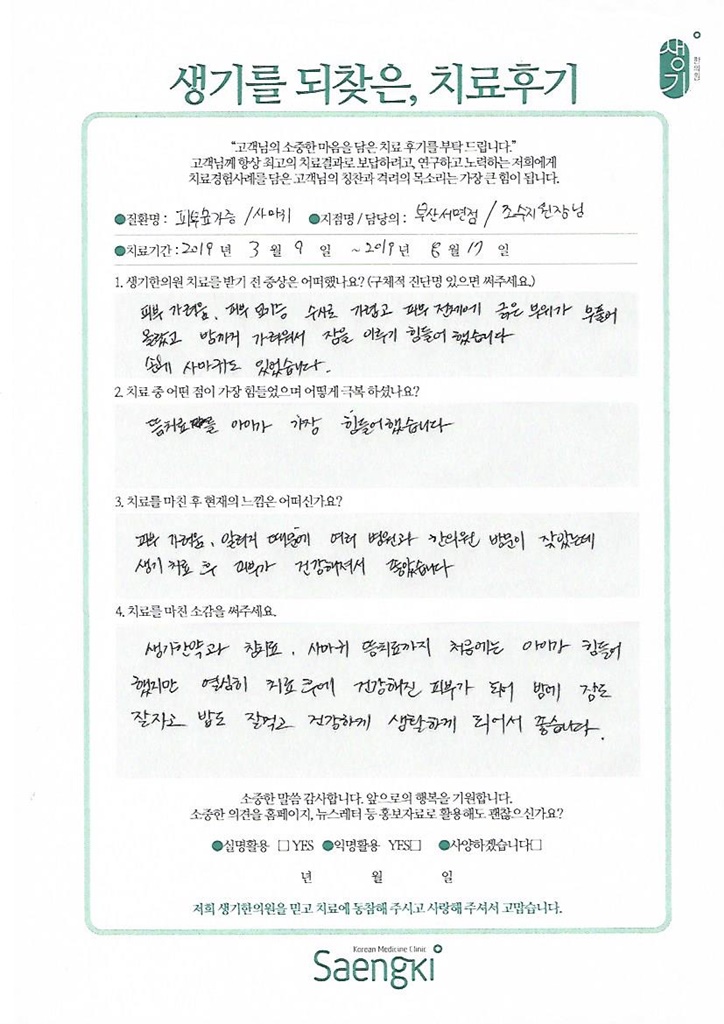 생기
한의원
생기를 되찾은, 치료후기
"고객님의 소중한 마음을 담은 치료 후기를 부탁 드립니다."
고객님께 항상 최고의 치료결과로 보답하려고, 연구하고 노력하는 저희에게
치료경험사례를 담은 고객님의 칭찬과 격려의 목소리는 가장 큰 힘이 됩니다.
●질환명 : 피부묘기증 / 사마귀 ●지점명 / 담당의 : 부산서면점 / 조수지 원장님
●치료기간 : 2019 년 3 월 9 일 ~ 2019 년 8 월 17 일
1. 생기한의원 치료를 받기 전 증상은 어떠했나요? (구체적 진단명 있으면 써주세요.)
피부 가려움, 피부 묘기증 수시로 가렵고 피부 전체에 긁은 부위가 부풀어
올랐고 밤까지 가려워서 잠을 이루기 힘들어 했습니다
손에 사마귀도 있었습니다.
2. 치료 중 어떤 점이 가장 힘들었으며 어떻게 극복 하셨나요?
뜸치료를 아이가 가장 힘들어했습니다
3. 치료를 마친 후 현재의 느낌은 어떠신가요?
피부 가려움, 알러지 때문에 여러 병원과 한의원 방문이 잦았는데
생기 치료 후 피부가 건강해져서 좋았습니다
4. 치료를 마친 소감을 써주세요.
생기한약과 침치료, 사마귀 뜸치료까지 처음에는 아이가 힘들어
했지만 열심히 치료 후에 건강해진 피부가 되어 밤에 잠도
잘자고 밥도 잘먹고 건강하게 생활하게 되어서 좋습니다.
소중한 말씀 감사합니다. 앞으로의 행복을 기원합니다.
소중한 의견을 홈페이지, 뉴스레터 등 홍보자료로 활용해도 괜찮으신가요?
●실명활용 □ YES ●익명활용 YES□ ●사양하겠습니다□
년 월 일
저희 생기한의원을 믿고 치료에 동참해 주시고 사랑해 주셔서 고맙습니다.
Korean Medicine Clinic
Saengki